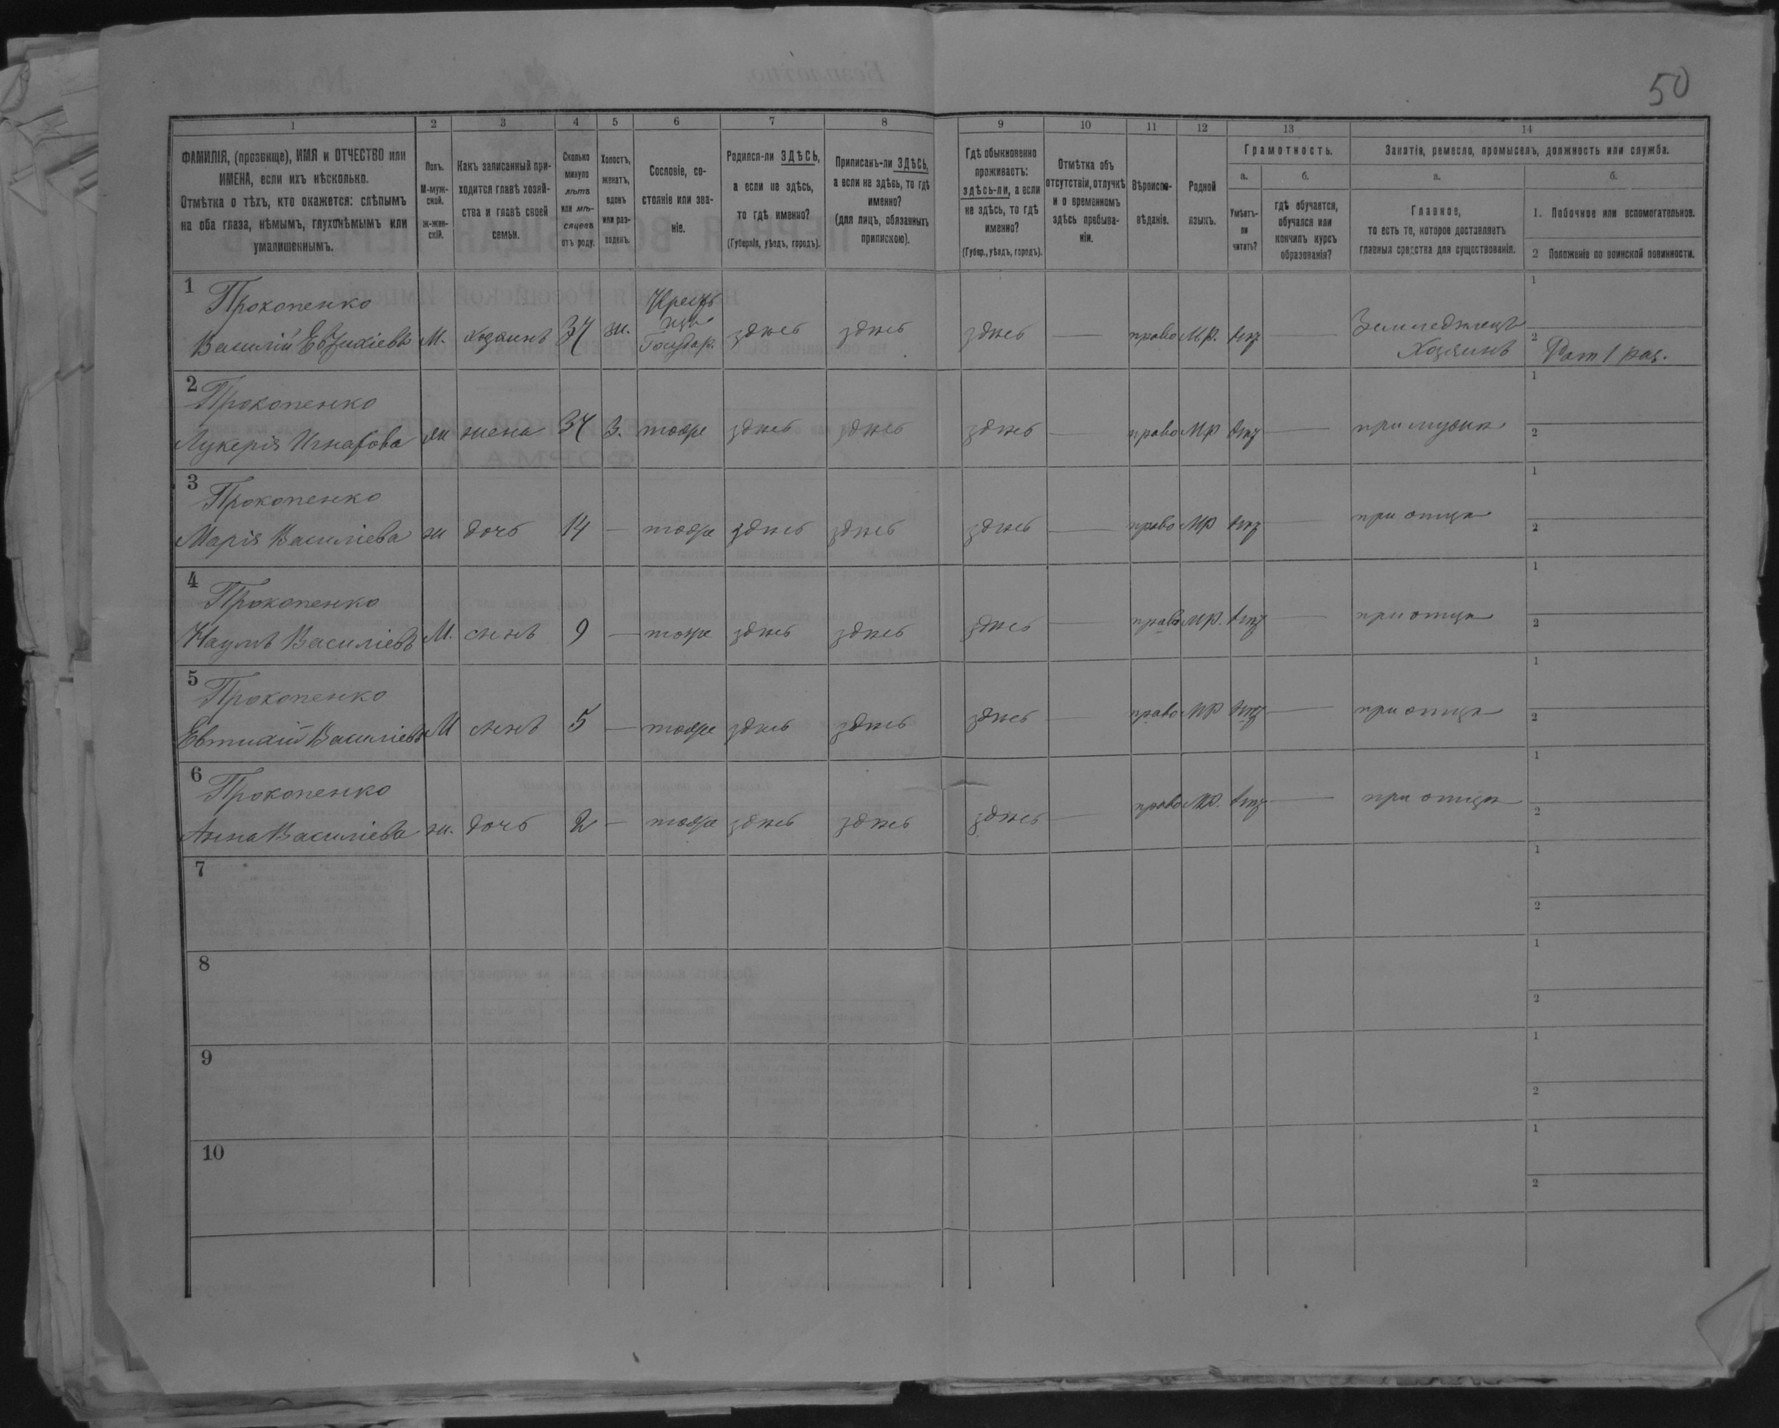 50
1 2 3 4 5 6 7 8 9 10 11 12 13 14
ФАМИЛІЯ, (прозвище), ИМЯ и ОТЧЕСТВО или
ИМЕНА, если ихъ нѣсколько.
Отмѣтка о тѣхъ, кто окажется: слѣпымъ
на оба глаза, нѣмымъ, глухонѣмымъ или
умалишеннымъ.
Полъ.
М-муж-
ской.
Ж-жен-
скій.
Какъ записанный при-
ходится главѣ хозяй-
ства и главѣ своей
семьи.
Сколько
минуло
лѣтъ
или мѣ-
сяцевъ
отъ роду.
Холостъ,
женатъ,
вдовъ
или раз-
веденъ.
Сословіе, со-
стояніе или зва-
ніе.
Родился-ли ЗДѢСЬ,
а если не здѣсь,
то гдѣ именно?
(Губернія, уѣздъ, городъ).
Приписанъ-ли ЗДѢСЬ,
а если не здѣсь, то гдѣ
именно?
(для лицъ, обязанныхъ
припискою).
Гдѣ обыкновенно
проживаетъ:
здѣсь-ли, а если
не здѣсь, то гдѣ
именно?
(Губер., уѣздъ, городъ).
Отмѣтка объ
отсутствіи, отлучкѣ
и о временномъ
здѣсь пребыва-
ніи.
Вѣроиспо-
вѣданіе.
Родной
языкъ.
Грамотность.
а.
Умѣетъ-
ли
читать?
б.
гдѣ обучается,
обучался или
кончилъ курсъ
образованія?
Занятія, ремесло, промыселъ, должность или служба.
а.
Главное,
то есть то, которое доставляетъ
главныя средства для существованія.
б.
1. Побочное или вспомогательное.
2 Положеніе по воинской повинности.
1 Прокопенко
Крестья
нинъ
Василій Евтихіевъ М. хозяинъ 37 ж. Государ. здѣсь здѣсь здѣсь — право М.Р. нѣтъ — Земледѣлецъ
Хозяинъ
1
2 Рат 1 раз.
2 Прокопенко
Лукерія Игнатова ж жена 37 З. тоже здѣсь здѣсь здѣсь — право МР нѣтъ — при мужѣ
1
2
3 Прокопенко
Марія Василіева ж дочь 14 — тоже здѣсь здѣсь здѣсь — право МР нѣтъ — при отцѣ
1
2
4 Прокопенко
Наумъ Василіевъ М. сынъ 9 — тоже здѣсь здѣсь здѣсь — право М.Р. нѣтъ — при отцѣ
1
2
5 Прокопенко
Евтихій Василіевъ М сынъ 5 — тоже здѣсь здѣсь здѣсь — право МР нѣтъ — при отцѣ
1
2
6 Прокопенко
Анна Василіева ж. дочь 2 — тоже здѣсь здѣсь здѣсь — право МР. нѣтъ — при отцѣ
1
2
7
1
2
8
1
2
9
1
2
10
1
2